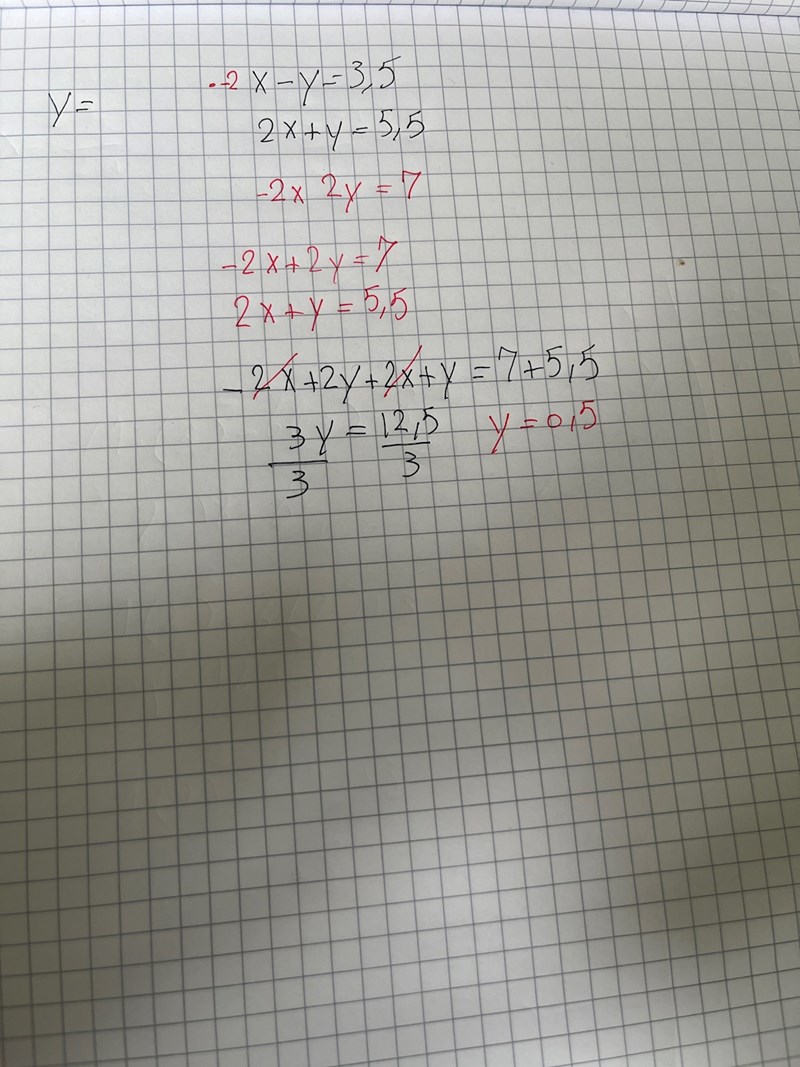 ·-2 x-y=3,5
y=
2x+y=5,5
-2x 2y=7
-2x+2y=7
2x+y=5,5
-2x+2y+2x+y=7+5,5
3y/3=12,5/3 y=0,5